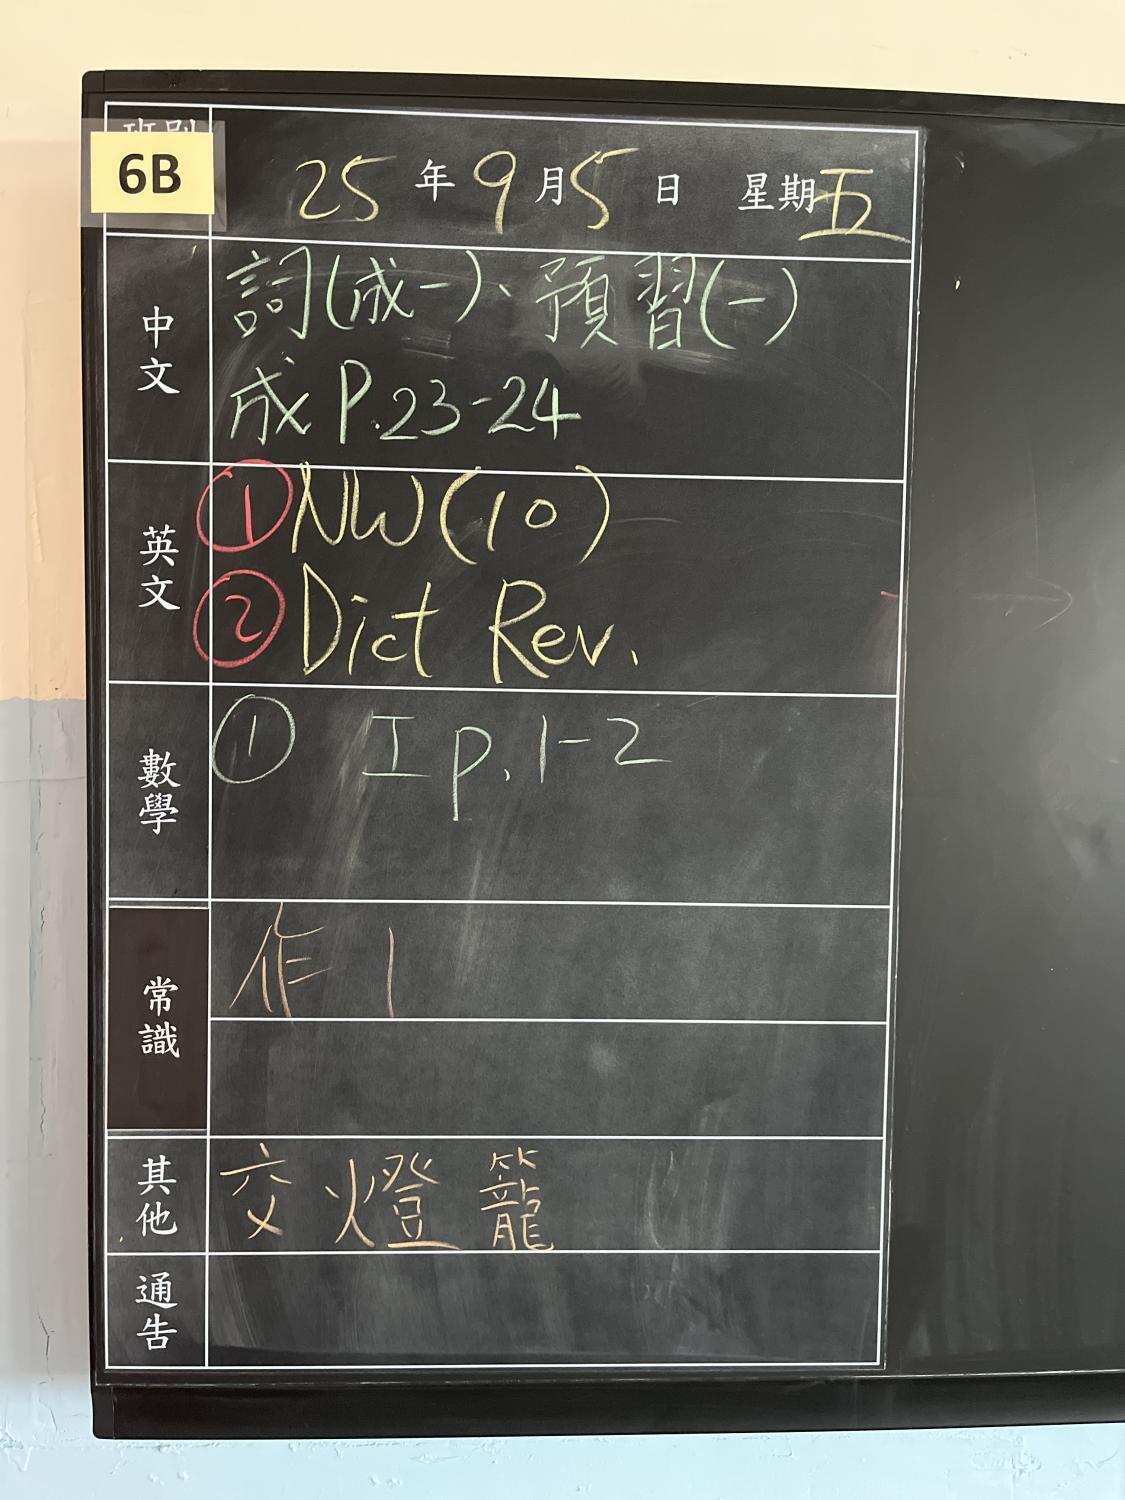 班別
6B
25年9月5日 星期五
中文
詞(成一)、預習(一)
成 P.23-24
英文
① NW(10)
② Dict Rev.
數學
① 工 p.1-2
常識
作 1
其他
交燈籠
通告